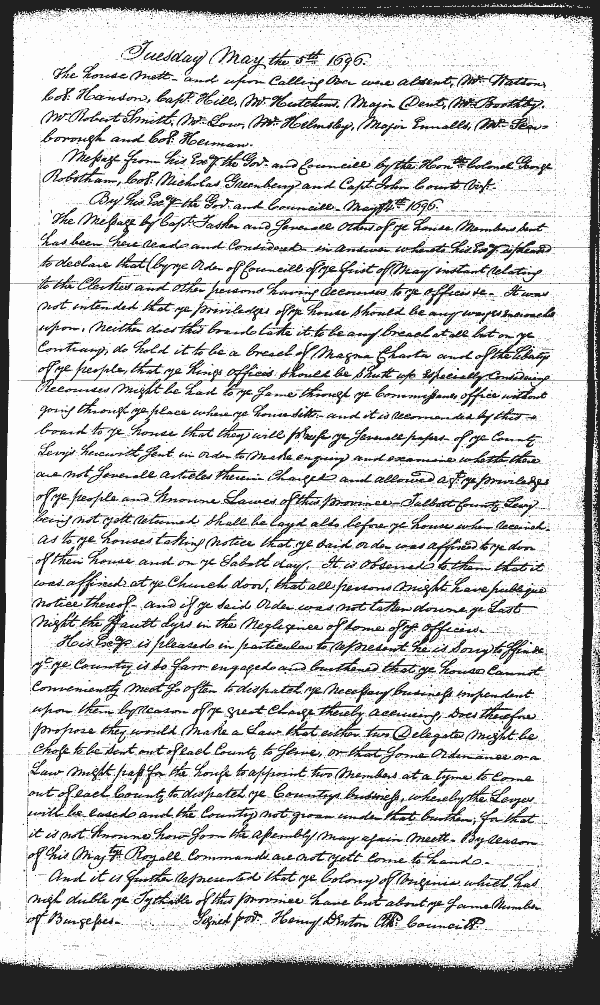 Tuesday May the 5th 1696.
The house mett - and upon Calling Over were absent, Mr. Watson,
Col. Hanson, Capt. Hill, Mr. Hutchins, Major Dent, Mr. Boothby,
Mr. Robert Smith, Mr. Low, Mr. Helmsley, Major Ennalls, Mr. Scar-
borough and Col. Herman.
Message from his Exy the Gov. and Councill by the Honble Colonel George
Robotham, Col. Nicholas Greenberry and Capt. John Courts Vizt.
By his Exy the Gov. and Councill May 4th 1696.
The Message by Capt. Tasker and severall others of ye house Members sent
has been here read and Considered in answer whereto his Exy is pleased
to declare that (by ye Order of Councill of ye first of May instant relating
to the Clerkes and other persons having recourses to ye offices &c. It was
not intended that ye priviledges of ye house should be any wayes encroacht
upon, neither does this board take it to be any breach at all but on ye
Contrary, do hold it to be a breach of Magna Charta and of the Liberty
of ye people, that ye Kings offices should be shutt up Especially Considering
recourses might be had to ye same through ye Commissarys office without
going through ye place where ye house sitts - and it is recomended by this
board to ye house that they will peruse ye severall papers of ye County
Levys herewith sent in order to make enquiry and examine whether there
are not severall articles therein Charged and allowed agt. ye priviledges
of ye people and knowne Lawes of this province - Talbott County Levy
being not yett returned shall be layd also before ye house when received.
As to ye houses taking notice that ye said order was affixed to ye door
of their house and on ye Sabott day. It is observed to them that it
was affixed at ye Church door, that all persons might have publique
notice thereof - and if ye said Order was not taken downe ye Last
Night the ffault Lyes in the Neglegence of some of ye officers.
His Exy is pleased in particular to represent he is Sorry to ffinde
yt. ye County is so farr engaged and burthened that ye house Cannot
Conveniently meet so often to dispatch ye Necessary business incumbent
upon them by reason of ye great Charge thereby accrueing, Does therefore
propose they would make a Law that either two Delegates might be
Chose to be sent out of each County to serve, or that some Ordinance or a
Law might pass for the house to appoint two Members at a tyme to come
out of each County to dispatch ye Countrys business, whereby the Levyes
will be eased and the County not groan under that burthen, for that
it is not knowne how soon the Assembly may again meett - By reason
of his Majtys Royall Commands are not yett come to hand.
And it is further represented that ye Colony of Virginia which has
nigh duble ye Tythable of this province have but about ye same number
of Burgesses. Signed p ord. Henry Denton Clk Councill.